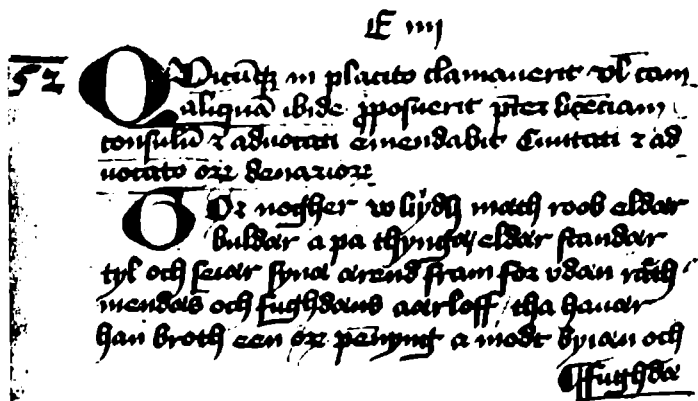 E iiij
52 QVicūqꝫ in placito clamauerit vl̄ cām
aliquā ibidē ꝓposuerit p̄ter licēciam
consulū ⁊ aduocati emendabit Ciuitati ⁊ ad
uocato ore denariorꝝ
Or nogher w lijdh math roob eldar
buldar a pa thyngaꝫ eldar standar
tyl och seiar syna arend fram for vdan rāth
mendas och fughdans aarloff tha hauar
han broth een ore pēnyng a modt byian och
¶fughda